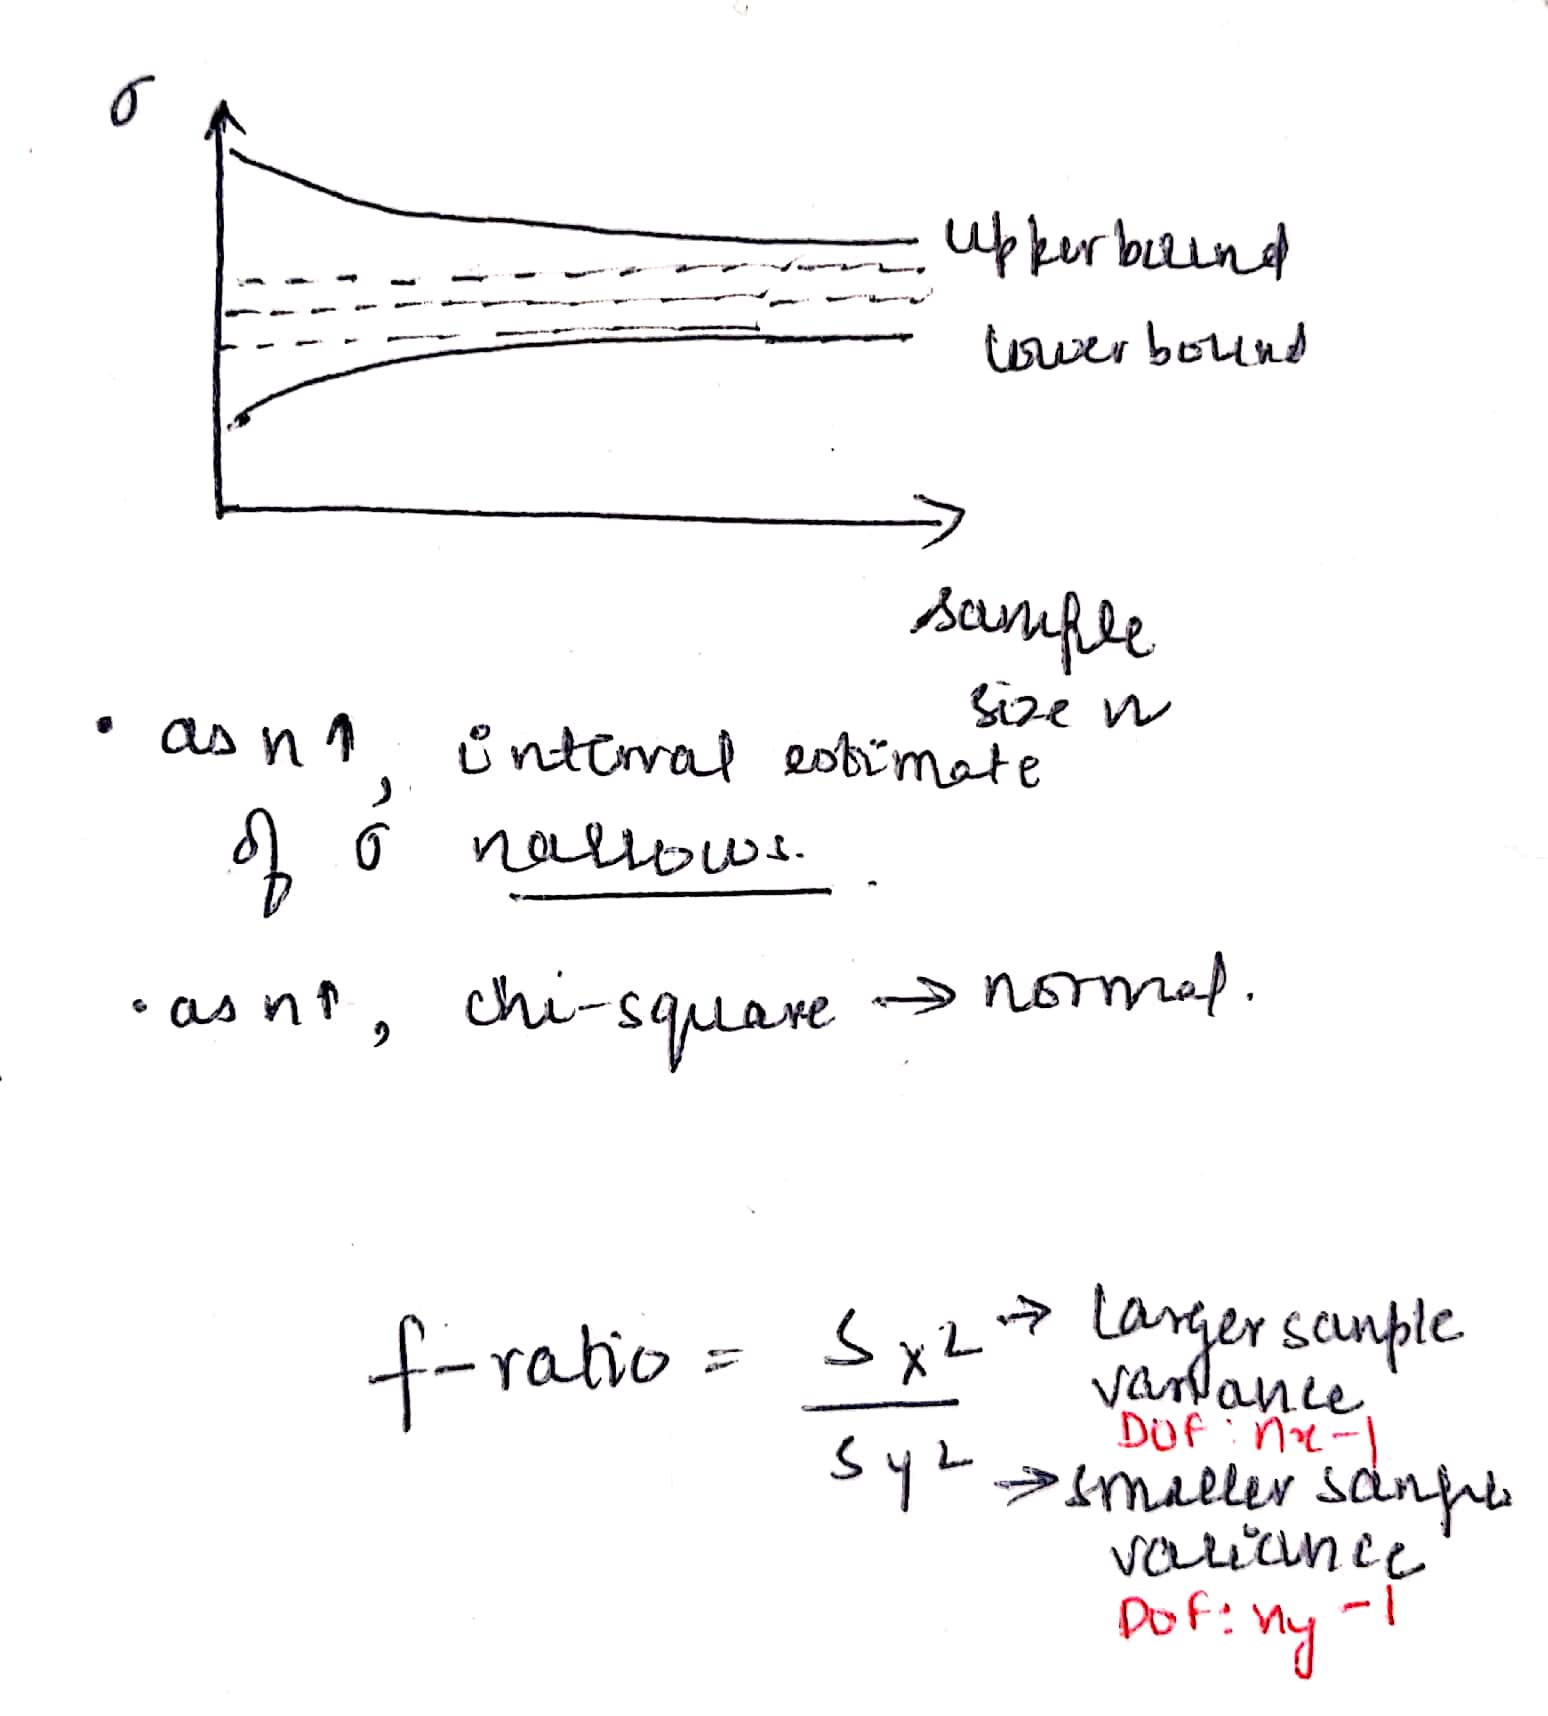 σ
upper bound
lower bound
sample
size n
• as n ↑, interval estimate
of σ narrows.
• as n ↑, chi-square → normal.
f-ratio = Sx² / Sy²
→ Larger sample
variance
DOF: nx-1
→ smaller sample
variance
DOF: ny-1